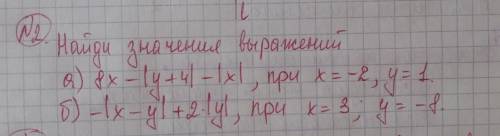 №2.
Найди значения выражений
а) 8x - |y+4| - |x|, при x = -2, y = 1.
б) -|x - y| + 2·|y|, при x = 3; y = -8.